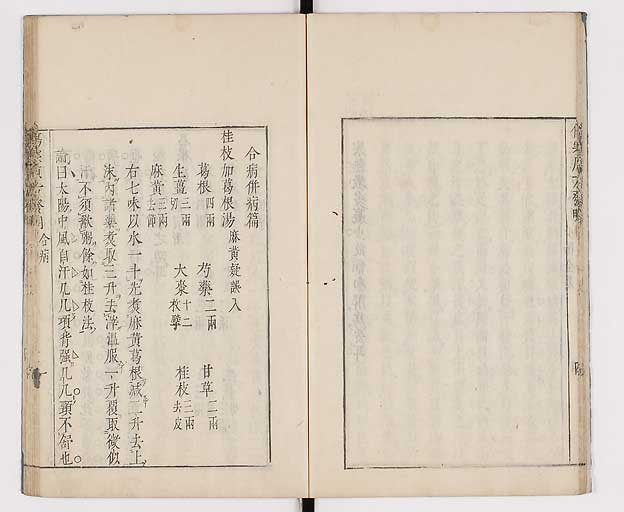 合病併病篇
桂枝加葛根湯 麻黄疑誤入
葛根四兩 芍藥二兩 甘草二兩
生薑三兩切 大棗十二枚擘 桂枝三兩去皮
麻黄三兩去節
右七味以水一斗先煮麻黄葛根減二升去上
沫内諸藥煮取三升去滓温服一升覆取微似
汗不須歠粥餘如桂枝法
論曰太陽中風自汗几几項背强几几頭不舒也
合病